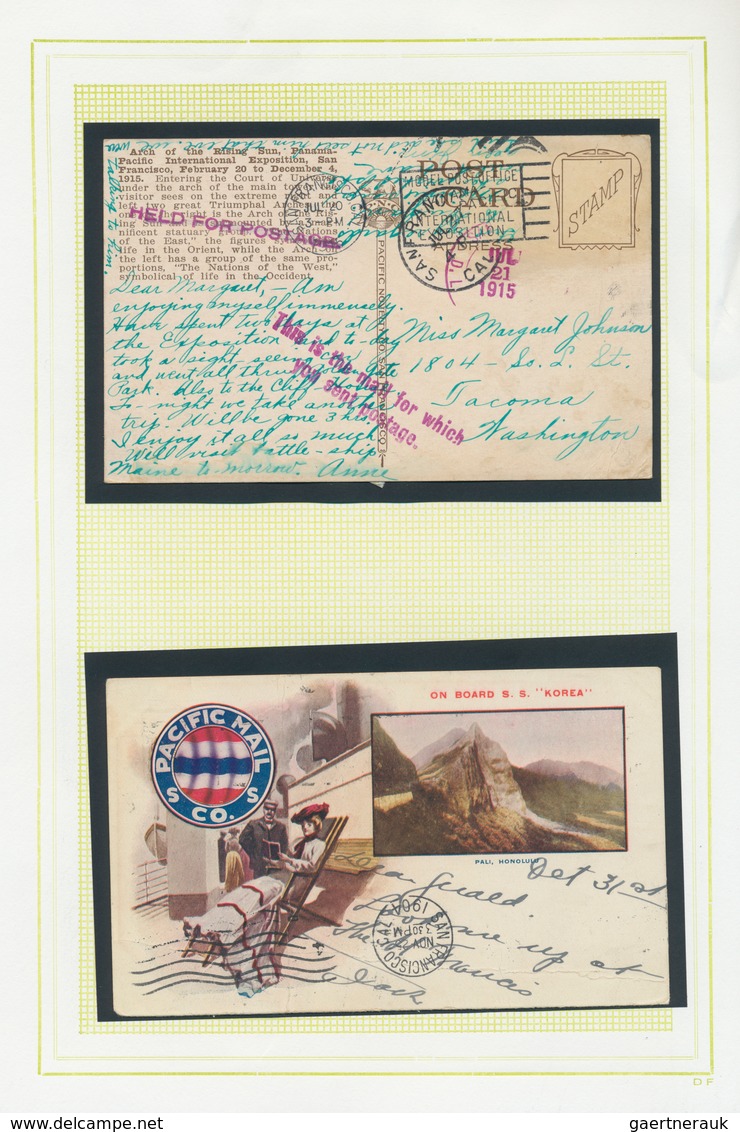 Arch of the Rising Sun, Panama-
Pacific International Exposition, San
Francisco, February 20 to December 4,
1915. Entering the Court of Universe
under the arch of the main tower the
visitor sees on the extreme right and
left two great Triumphal Arches.
on the right is the Arch of the Ris-
ing Sun surmounted by a
nificent statuary group
of the East," the figures
life in the Orient, while the Arch on
the left has a group of the same pro-
portions, "The Nations of the West,"
symbolical of life in the Occident.
HELD FOR POSTAGE.
talking to him.
JUL 20
3-PM
POST
CARD
MODEL POST OFFICE
INTERNATIONAL
EXPOSITION
SAN FRANCISCO
CAL.
STAMP
JUL
21
1915
Dear Margaret, - Am
enjoying myself immensely.
Have spent two days at
the Exposition and to-day
took a sight seeing
and went all thru Golden Gate
Park. Also to the Cliff House
To-night we take another
trip. Will be gone 3 hrs.
I enjoy it all so much.
Will visit battle-ship
Maine to-morrow. Anna
This is the mail for which
you sent postage.
Miss Margaret Johnson
1804 - So. L St.
Tacoma
Washington
ON BOARD S. S. "KOREA"
PACIFIC MAIL
S S
CO.
PALI, HONOLULU
Oct 31st
Dear Gerald
Look me up at
The St. Francis
Jack
SAN FRANCISCO, CAL.
NOV 2
3.30 PM
1904
D F
gaertnerauk